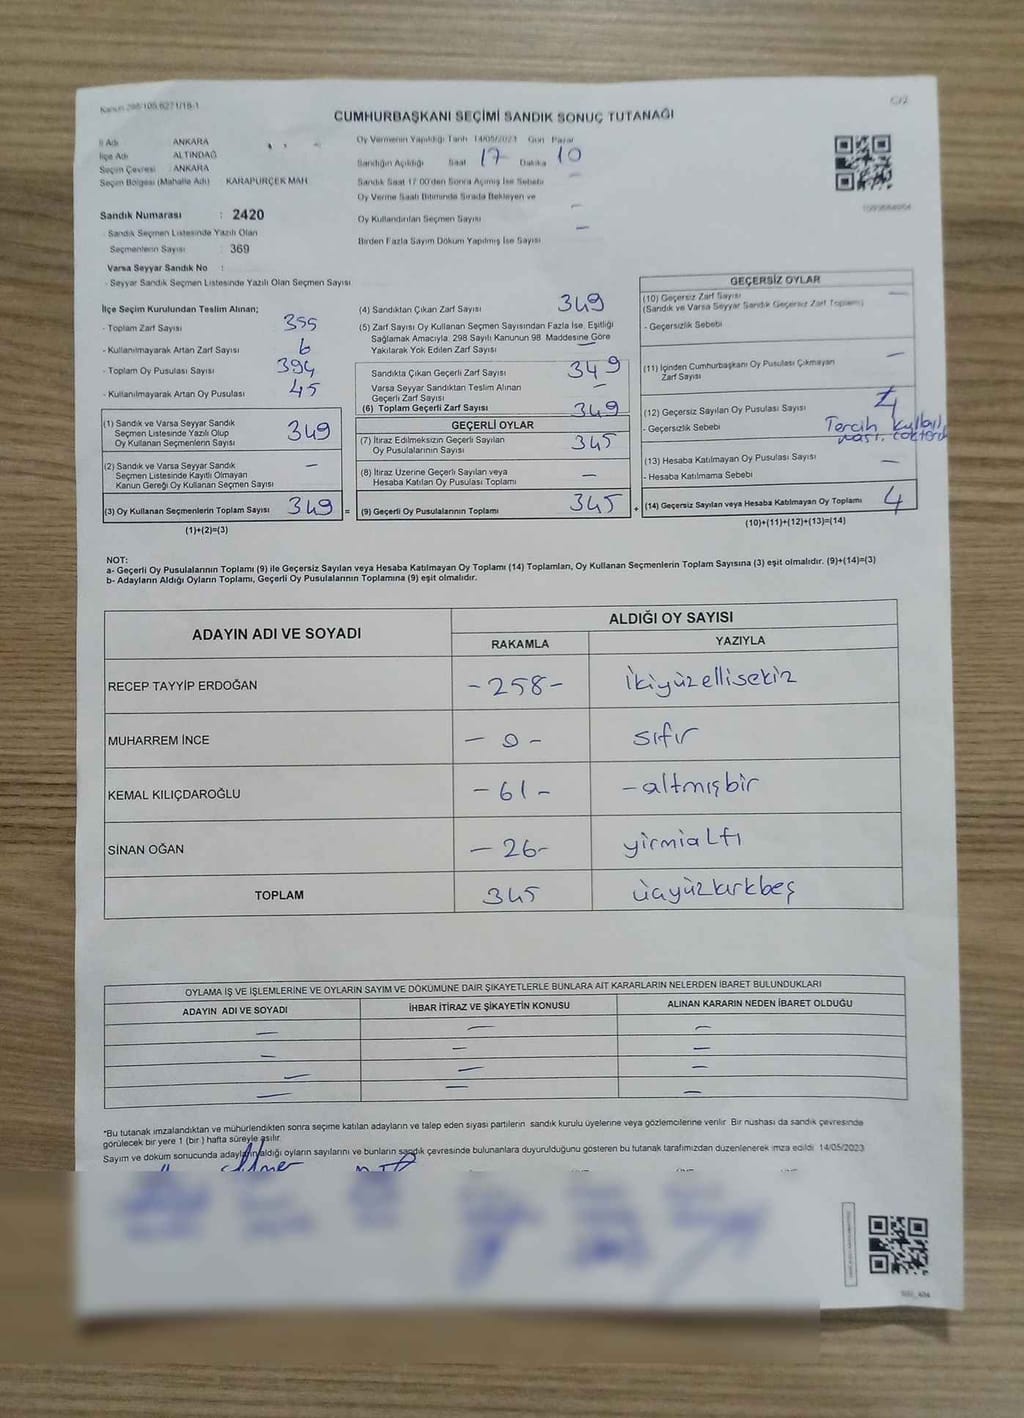 Kanun 298/105,6271/18-1
C/2
CUMHURBAŞKANI SEÇİMİ SANDIK SONUÇ TUTANAĞI
İl Adı ANKARA
İlçe Adı ALTINDAĞ
Seçim Çevresi : ANKARA
Seçim Bölgesi (Mahalle Adı) KARAPÜRÇEK MAH
Sandık Numarası : 2420
- Sandık Seçmen Listesinde Yazılı Olan
Seçmenlerin Sayısı 369
Varsa Seyyar Sandık No :
- Seyyar Sandık Seçmen Listesinde Yazılı Olan Seçmen Sayısı
Oy Vermenin Yapıldığı Tarih 14/05/2023 Gün Pazar
Sandığın Açıldığı Saat 17 Dakika 10
Sandık Saat 17 00'den Sonra Açılmış İse Sebebi –
Oy Verme Saati Bitiminde Sırada Bekleyen ve
Oy Kullandırılan Seçmen Sayısı –
Birden Fazla Sayım Döküm Yapılmış İse Sayısı –
İlçe Seçim Kurulundan Teslim Alınan;
- Toplam Zarf Sayısı 355
- Kullanılmayarak Artan Zarf Sayısı 6
- Toplam Oy Pusulası Sayısı 394
- Kullanılmayarak Artan Oy Pusulası 45
(1) Sandık ve Varsa Seyyar Sandık
Seçmen Listesinde Yazılı Olup
Oy Kullanan Seçmenlerin Sayısı 349
(2) Sandık ve Varsa Seyyar Sandık
Seçmen Listesinde Kayıtlı Olmayan
Kanun Gereği Oy Kullanan Seçmen Sayısı –
(3) Oy Kullanan Seçmenlerin Toplam Sayısı 349 =
(1)+(2)=(3)
(4) Sandıktan Çıkan Zarf Sayısı 349
(5) Zarf Sayısı Oy Kullanan Seçmen Sayısından Fazla İse, Eşitliği
Sağlamak Amacıyla 298 Sayılı Kanunun 98. Maddesine Göre
Yakılarak Yok Edilen Zarf Sayısı –
Sandıkta Çıkan Geçerli Zarf Sayısı 349
Varsa Seyyar Sandıktan Teslim Alınan
Geçerli Zarf Sayısı –
(6) Toplam Geçerli Zarf Sayısı 349
GEÇERLİ OYLAR
(7) İtiraz Edilmeksizin Geçerli Sayılan
Oy Pusulalarının Sayısı 345
(8) İtiraz Üzerine Geçerli Sayılan veya
Hesaba Katılan Oy Pusulası Toplamı –
(9) Geçerli Oy Pusulalarının Toplamı 345 +
GEÇERSİZ OYLAR
(10) Geçersiz Zarf Sayısı –
(Sandık ve Varsa Seyyar Sandık Geçersiz Zarf Toplamı)
- Geçersizlik Sebebi
(11) İçinden Cumhurbaşkanı Oy Pusulası Çıkmayan –
Zarf Sayısı
(12) Geçersiz Sayılan Oy Pusulası Sayısı 4
- Geçersizlik Sebebi Tercih
(13) Hesaba Katılmayan Oy Pusulası Sayısı –
- Hesaba Katılmama Sebebi
(14) Geçersiz Sayılan veya Hesaba Katılmayan Oy Toplamı 4
(10)+(11)+(12)+(13)=(14)
NOT:
a- Geçerli Oy Pusulalarının Toplamı (9) ile Geçersiz Sayılan veya Hesaba Katılmayan Oy Toplamı (14) Toplamları, Oy Kullanan Seçmenlerin Toplam Sayısına (3) eşit olmalıdır. (9)+(14)=(3)
b- Adayların Aldığı Oyların Toplamı, Geçerli Oy Pusulalarının Toplamına (9) eşit olmalıdır.
ADAYIN ADI VE SOYADI ALDIĞI OY SAYISI
RAKAMLA YAZIYLA
RECEP TAYYİP ERDOĞAN -258- ikiyüzellisekiz
MUHARREM İNCE - 0 - sıfır
KEMAL KILIÇDAROĞLU -61- -altmışbir
SİNAN OĞAN -26- yirmialtı
TOPLAM 345 üçyüzkırkbeş
OYLAMA İŞ VE İŞLEMLERİNE VE OYLARIN SAYIM VE DÖKÜMÜNE DAİR ŞİKAYETLERLE BUNLARA AİT KARARLARIN NELERDEN İBARET BULUNDUKLARI
ADAYIN ADI VE SOYADI İHBAR İTİRAZ VE ŞİKAYETİN KONUSU ALINAN KARARIN NEDEN İBARET OLDUĞU
– – –
– – –
– – –
– – –
*Bu tutanak imzalandıktan ve mühürlendikten sonra seçime katılan adayların ve talep eden siyasi partilerin sandık kurulu üyelerine veya gözlemcilerine verilir Bir nüshası da sandık çevresinde
görülecek bir yere 1 (bir ) hafta süreyle asılır
Sayım ve döküm sonucunda adayların aldığı oyların sayılarını ve bunların sandık çevresinde bulunanlara duyurulduğunu gösteren bu tutanak tarafımızdan düzenlenerek imza edildi 14/05/2023